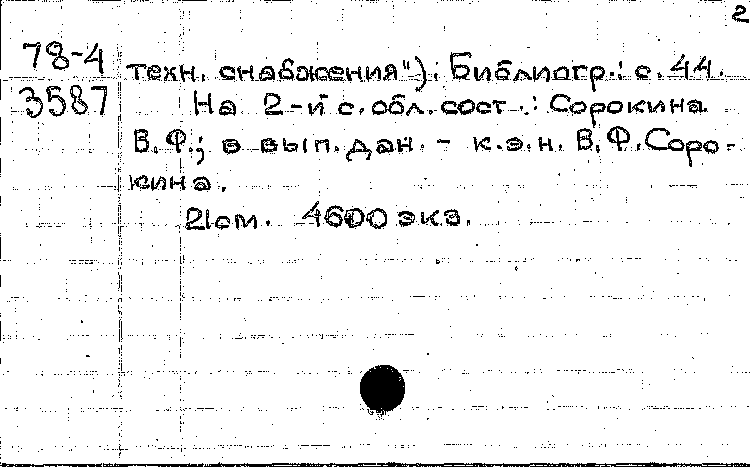 2
78-4
3587
техн. снабжения"). Библиогр.: с. 44.
На 2-й с. обл. сост.: Сорокина
В. Ф.; в вып. дан. - к.э.н. В. Ф. Соро-
кина.
21см. 4600 экз.